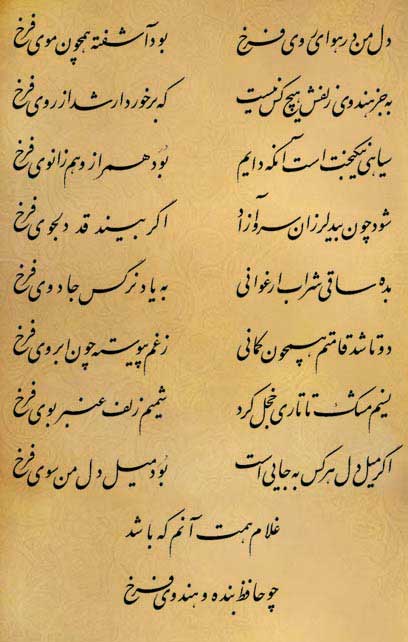 دل من در هوای روی فرخ بود آشفته همچون موی فرخ
به جز هندوی زلفش هیچ کس نیست که برخوردار شد از روی فرخ
سیاهی نیکبخت است آنکه دایم بود همراز و هم زانوی فرخ
شود چون بید لرزان سرو آزاد اگر بیند قد دلجوی فرخ
بده ساقی شراب ارغوانی به یاد نرگس جادوی فرخ
دوتا شد قامتم همچون کمانی ز غم پیوسته چون ابروی فرخ
نسیم مشک تاتاری خجل کرد شمیم زلف عنبربوی فرخ
اگر میل دل هر کس به جایی است بود میل دل من سوی فرخ
غلام همت آنم که باشد
چو حافظ بنده و هندوی فرخ